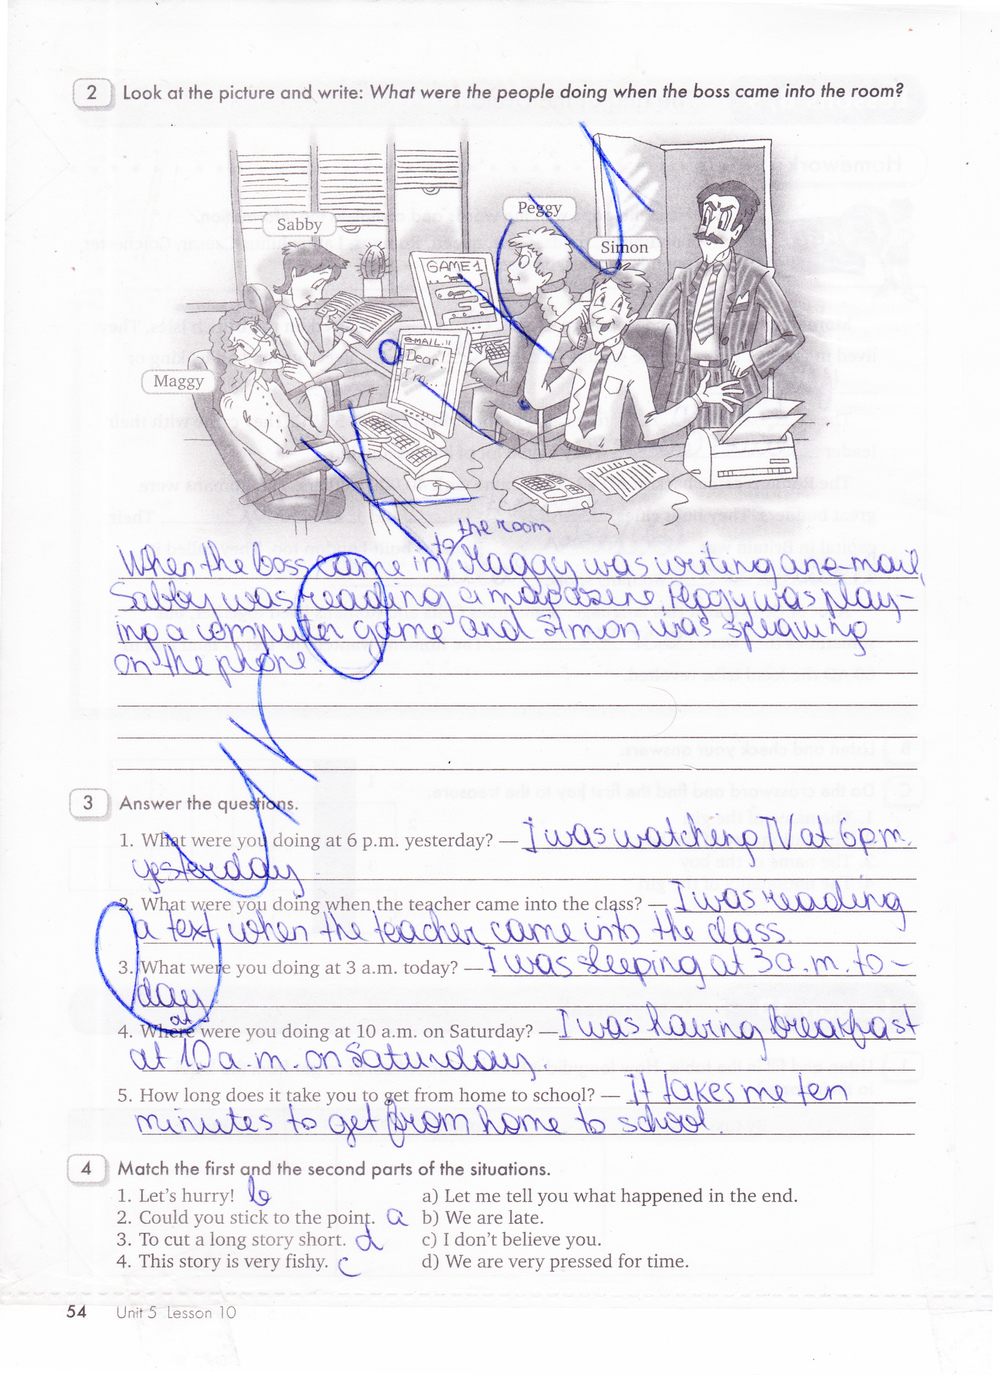 2 Look at the picture and write: What were the people doing when the boss came into the room?
Sabby
Peggy
Simon
Maggy
GAME 1
E-MAIL 11
Dear!
I'm...
the room
When the boss came into Maggy was writing an e-mail,
Sabby was reading a magazine, Peggy was play-
ing a computer game and Simon was speaking
on the phone.
3 Answer the questions.
1. What were you doing at 6 p.m. yesterday? — I was watching TV at 6 p.m.
yesterday.
2. What were you doing when the teacher came into the class? — I was reading
a text, when the teacher came into the class.
3. What were you doing at 3 a.m. today? — I was sleeping at 3 a.m. to-
day
4. What were you doing at 10 a.m. on Saturday? — I was having breakfast
at 10 a.m. on Saturday.
5. How long does it take you to get from home to school? — It takes me ten
minutes to get from home to school.
4 Match the first and the second parts of the situations.
1. Let's hurry! b a) Let me tell you what happened in the end.
2. Could you stick to the point. a b) We are late.
3. To cut a long story short. d c) I don't believe you.
4. This story is very fishy. c d) We are very pressed for time.
54 Unit 5 Lesson 10